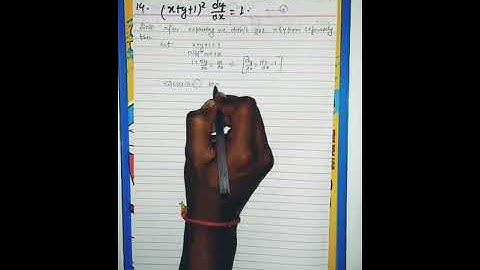 14. (x+y+1)² dy/dx = 1. — ①
after separating we didn't get x & y term separately
then
let x+y+1 = t
1 + dy/dx = dt/dx ⇒ [dy/dx = dt/dx - 1]
equation ①